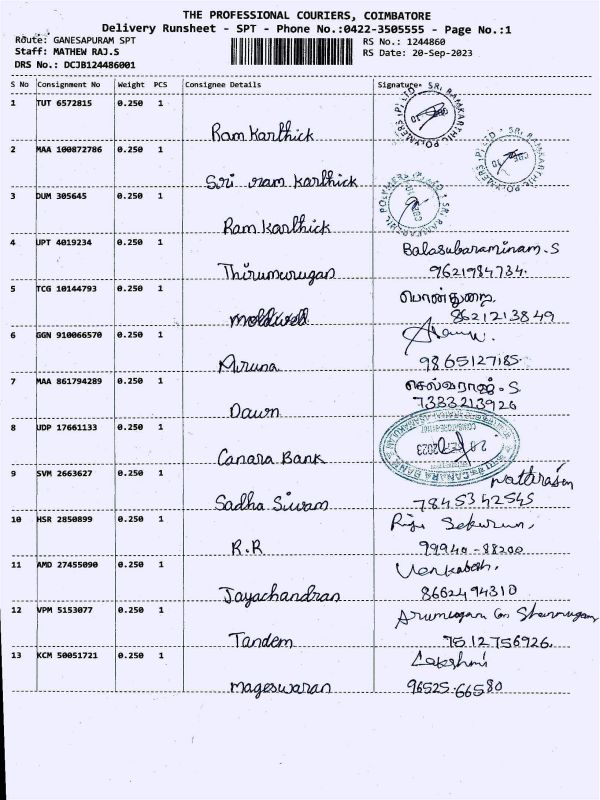 THE PROFESSIONAL COURIERS, COIMBATORE
Delivery Runsheet - SPT - Phone No.:0422-3505555 - Page No.:1
Route: GANESAPURAM SPT
RS No.: 1244860
Staff: MATHEW RAJ.S
RS Date: 20-Sep-2023
DRS No.: DCJB124486001
S No Consignment No Weight PCS Consignee Details Signature
SRI RAMKARTHIC POLYMERS (P) LTD
1 TUT 6572815 0.250 1
Ram Karthick
SRI RAMKARTHIC POLYMERS (P) LTD
2 MAA 100872786 0.250 1
Sri ram karthick
SRI RAMKARTHIC POLYMERS (P) LTD
3 DUM 305645 0.250 1
Ram Karthick
4 UPT 4019234 0.250 1 Balasubaraminam.S
Thirumurugan 9621984734.
5 TCG 10144793 0.250 1 பொன்துரை
moldwell 8621213849
6 GGN 910066570 0.250 1
Aruna 9865127185.
7 MAA 861794289 0.250 1 செல்வராஜ்.S
Dawn 7333213926
8 UDP 17661133 0.250 1
CANARA BANK
2023
Canara Bank
9 SVM 2663627 0.250 1
Sadha Sivam 7845342545
10 HSR 2850899 0.250 1
R.R 99940-88200
11 AMD 27455090 0.250 1 Venkatesh.
Jayachandran 8662494310
12 VPM 5153077 0.250 1
Tandem 7512756926.
13 KCM 50051721 0.250 1 Lakshmi
mageswaran 96525.66580